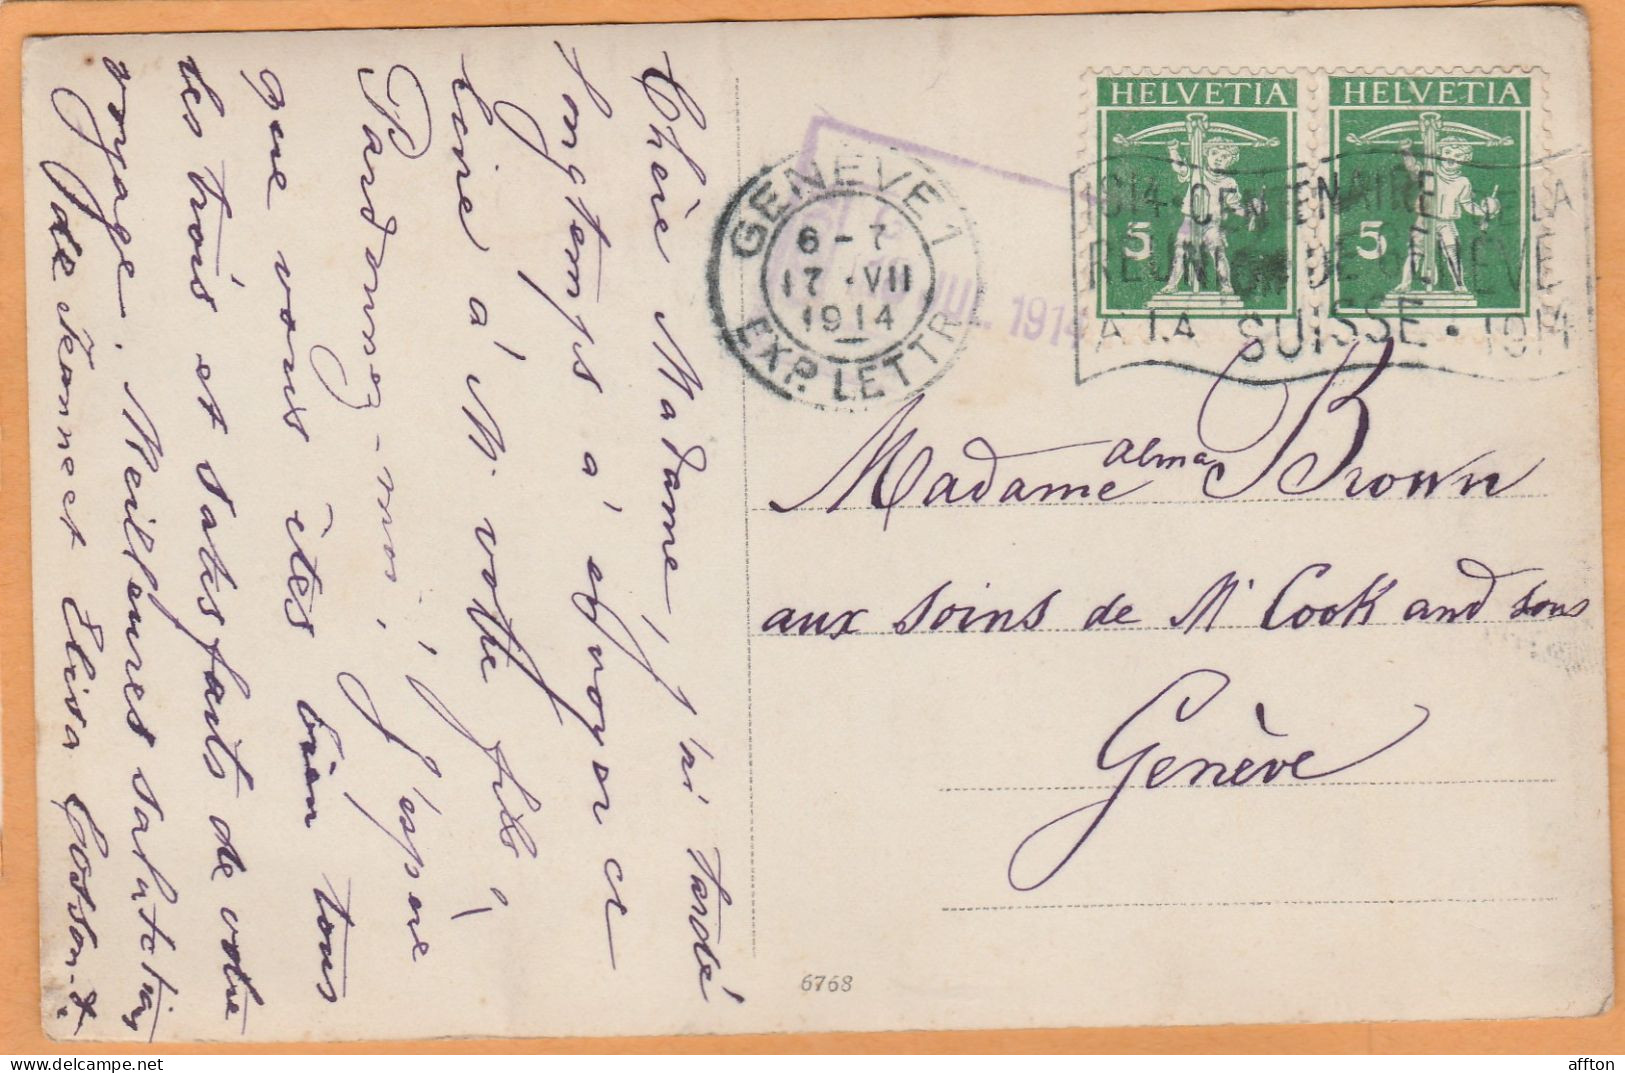 Chère Madame, j'ai tardé
longtemps à envoyer ce
livre à M. votre fils,
Pardonnez-moi; j'espère
que vous êtes bien tous
les trois et satisfaits de votre
voyage. Meilleures salutations
de Jeannet Elisa Cosson
HELVETIA
5
HELVETIA
5
GENEVE 1
6-7
17·VII
1914
EXP. LETTR
JUL 1914
1914·CENTENAIRE DE LA
REUNION DE GENEVE
A LA SUISSE·1914
Madame Alma Brown
aux soins de Mr Cook and sons
Genève
6768
affton